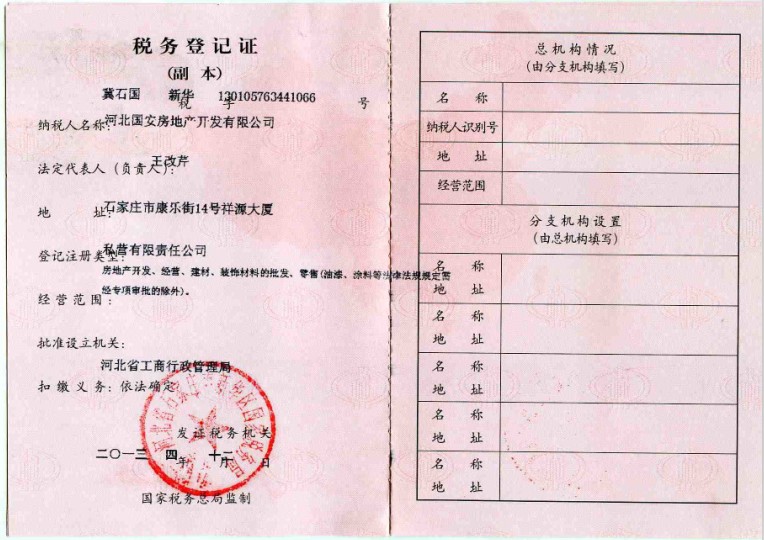 税务登记证
(副 本)
冀石国 新华 130105763441066
税 字 号
纳税人名称:河北国安房地产开发有限公司
法定代表人(负责人):王改芹
地 址:石家庄市康乐街14号祥源大厦
登记注册类型:私营有限责任公司
房地产开发、经营、建材、装饰材料的批发、零售(油漆、涂料等法律法规规定需
经专项审批的除外)。
经营范围:
批准设立机关:
河北省工商行政管理局
扣缴义务:依法确定
发证税务机关
二〇一三年 四月 十二日
国家税务总局监制
总机构情况
(由分支机构填写)
名 称
纳税人识别号
地 址
经营范围
分支机构设置
(由总机构填写)
名 称
地 址
名 称
地 址
名 称
地 址
名 称
地 址
名 称
地 址